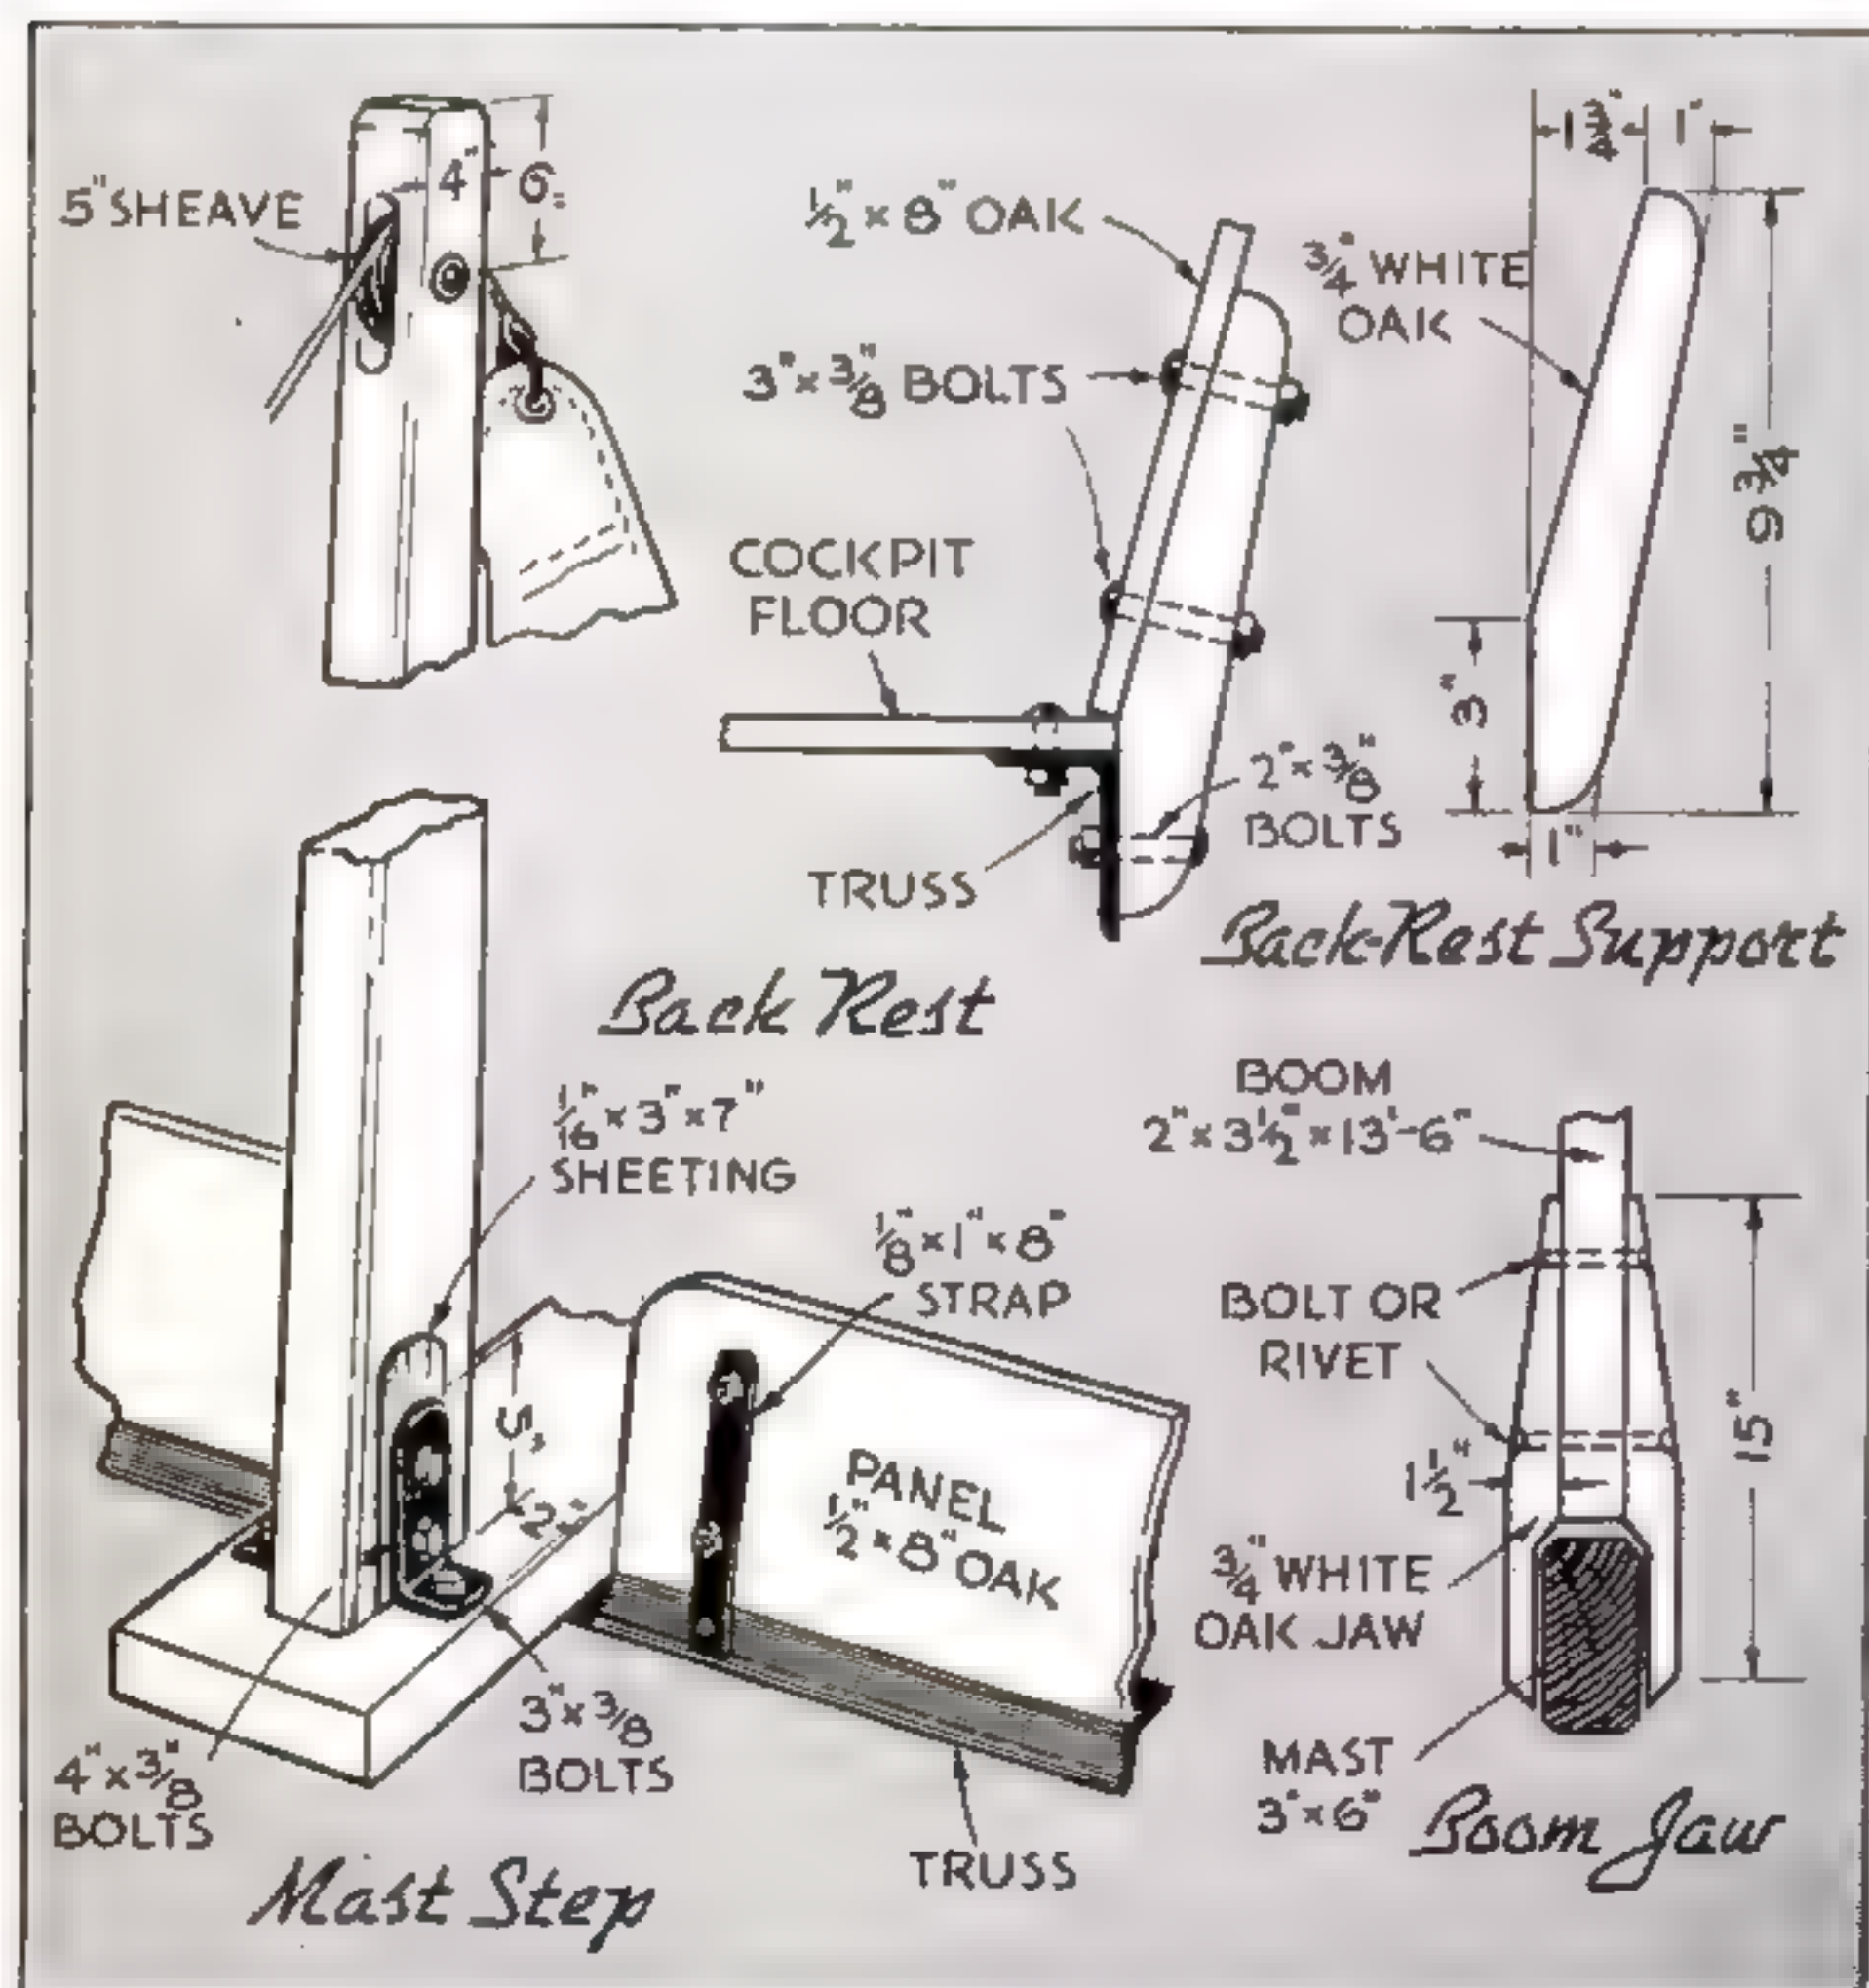 5" SHEAVE
4"
6"
1/2" × 8" OAK
3" × 3/8" BOLTS
COCKPIT
FLOOR
TRUSS
2" × 3/8"
BOLTS
Back Rest
1 3/4"
1"
3/4" WHITE
OAK
9 3/4"
3"
1"
Back-Rest Support
1/16" × 3" × 7"
SHEETING
1/8" × 1" × 8"
STRAP
5"
2"
PANEL
1/2" × 8" OAK
3" × 3/8
BOLTS
4" × 3/8"
BOLTS
TRUSS
Mast Step
BOOM
2" × 3 1/2" × 13'-6"
BOLT OR
RIVET
15"
1 1/2"
3/4" WHITE
OAK JAW
MAST
3" × 6"
Boom Jaw